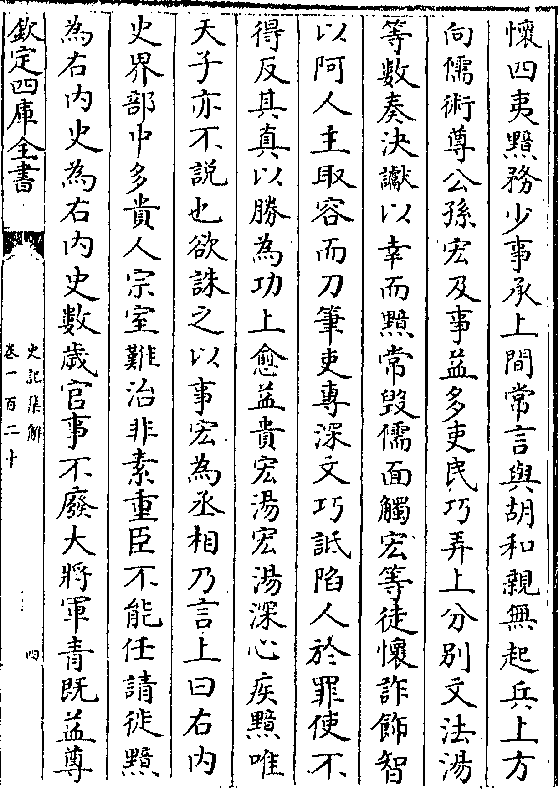 懷四夷黯務少事承上間常言與胡和親無起兵上方
向儒術尊公孫宏及事益多吏民巧弄上分別文法湯
等數奏決讞以幸而黯常毀儒面觸宏等徒懷詐飾智
以阿人主取容而刀筆吏專深文巧詆陷人於罪使不
得反其真以勝為功上愈益貴宏湯宏湯深心疾黯唯
天子亦不説也欲誅之以事宏為丞相乃言上曰右内
史界部中多貴人宗室難治非素重臣不能任請徙黯
為右内史為右内史數歲官事不廢大將軍青既益尊
欽定四庫全書
史記集解
卷一百二十
四